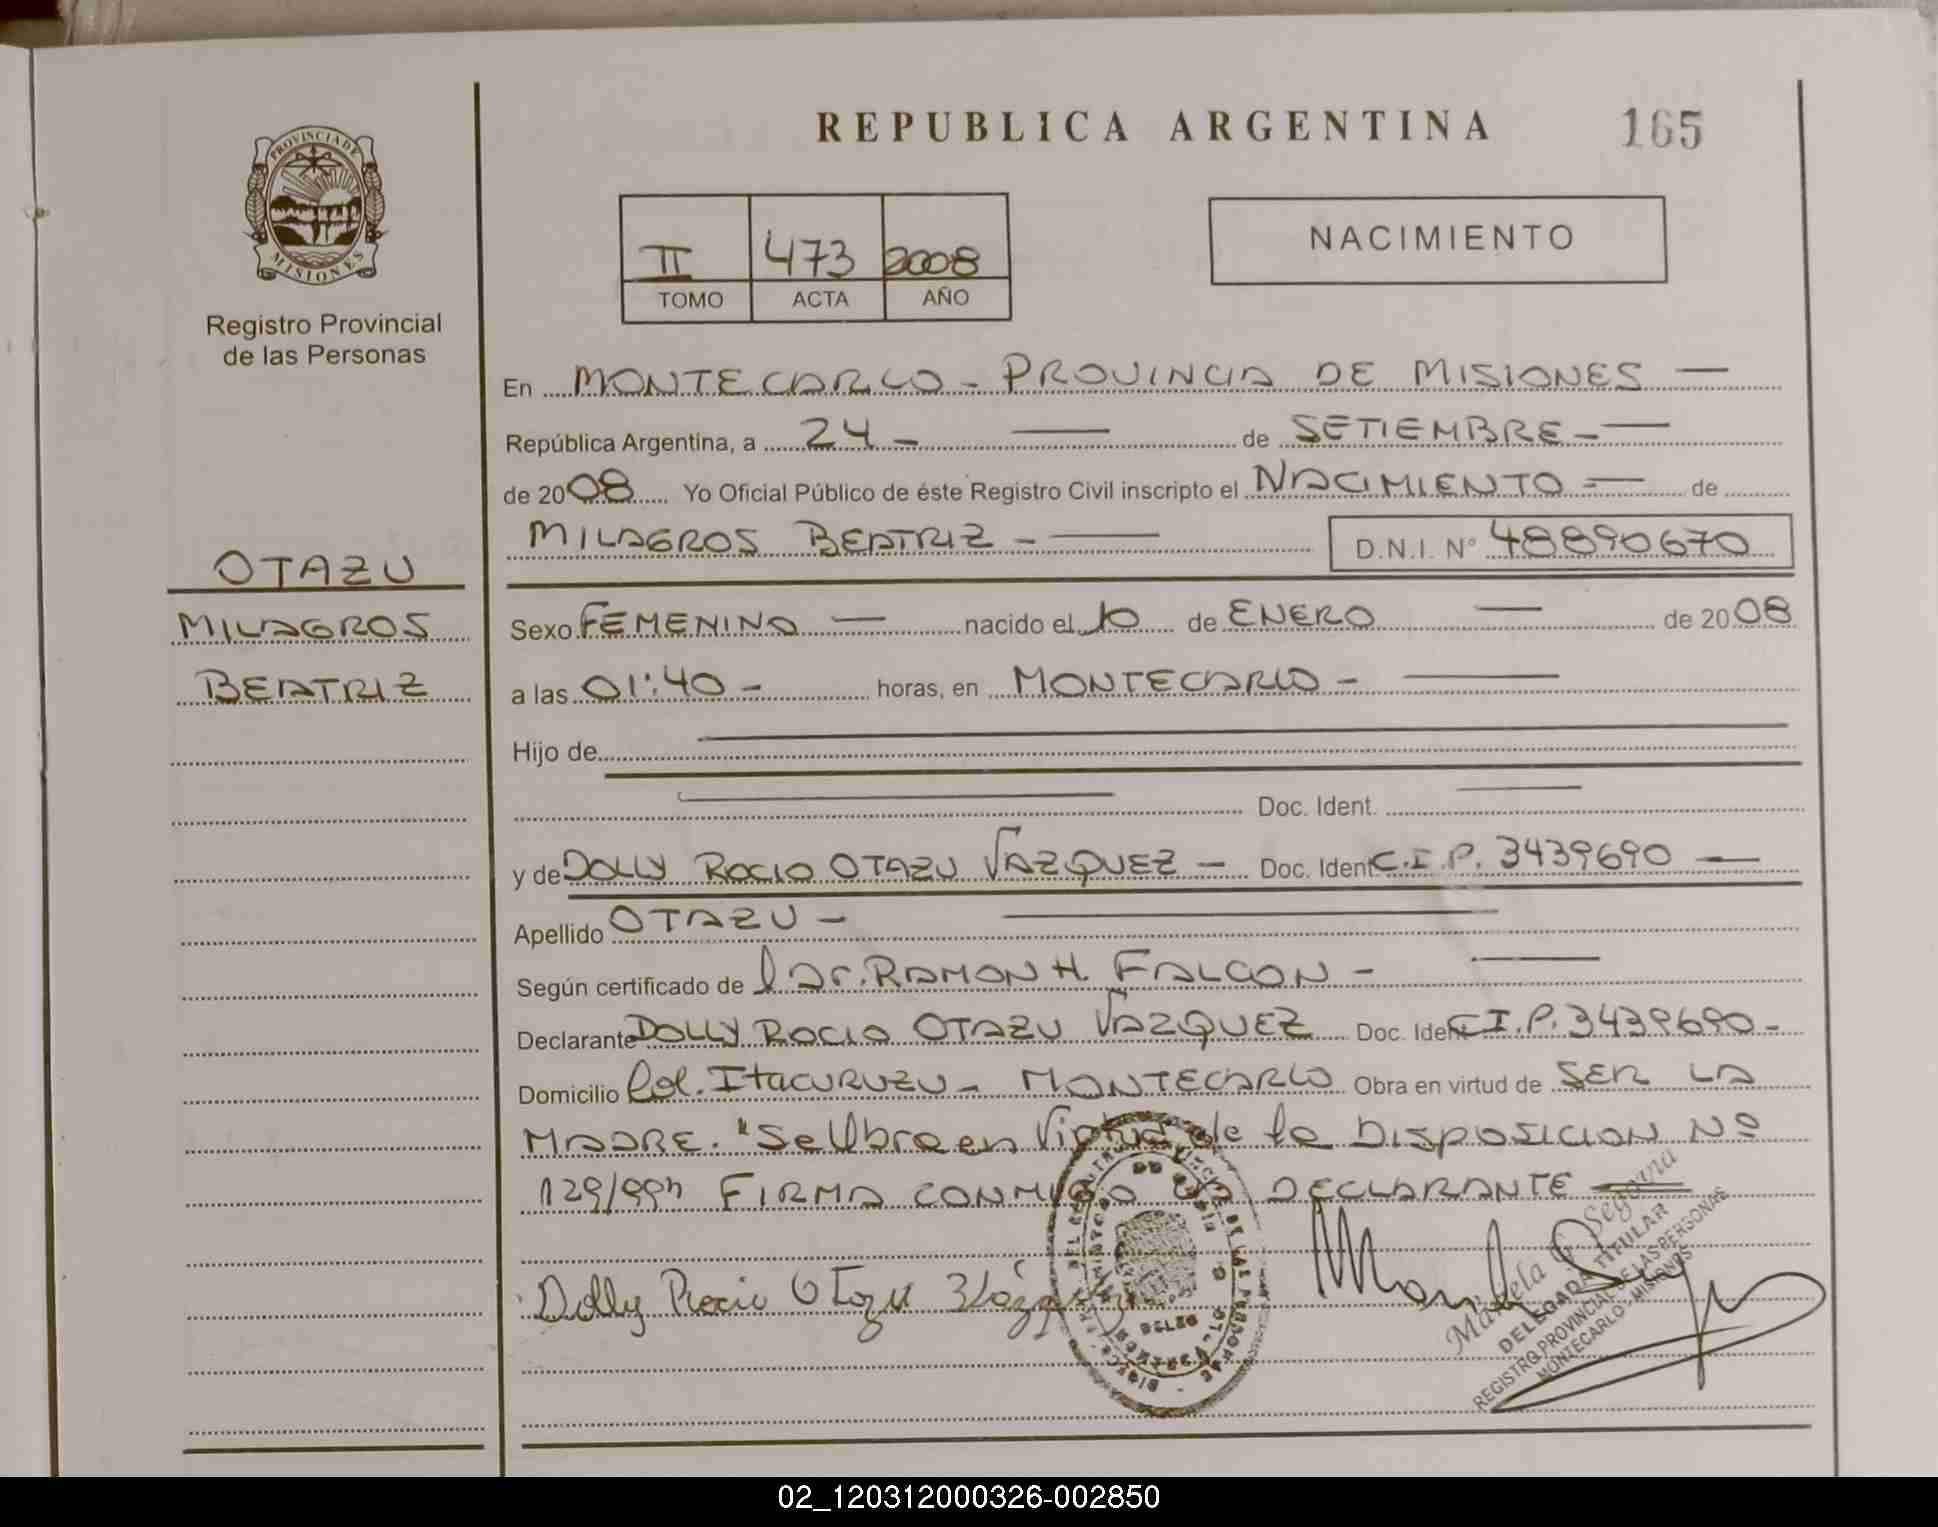 REPUBLICA ARGENTINA
165
PROVINCIA DE
MISIONES
Registro Provincial
de las Personas
II 473 2008
TOMO ACTA AÑO
NACIMIENTO
En MONTECARLO - PROVINCIA DE MISIONES —
República Argentina, a 24 - — de SETIEMBRE - —
de 2008 Yo Oficial Público de éste Registro Civil inscripto el NACIMIENTO - — de
MILAGROS BEATRIZ - — D.N.I. N° 48890670
OTAZU
MILAGROS
BEATRIZ
Sexo FEMENINO — nacido el 10 de ENERO — de 2008
a las 01:40 - horas, en MONTECARLO - —
Hijo de
Doc. Ident.
y de DOLLY ROCIO OTAZU VAZQUEZ — Doc. Ident C.I.P. 3439690 —
Apellido OTAZU - —
Según certificado de Dr. RAMON H. FALCON - —
Declarante DOLLY ROCIO OTAZU VAZQUEZ Doc. Ident C.I.P. 3439690 -
Domicilio Col. ITACURUZU - MONTECARLO Obra en virtud de SER LA
MADRE. "Se Obra en Virtud de la DISPOSICION Nº
129/99" FIRMA CONMIGO LA DECLARANTE —
Dolly Rocio Otazu
Segovia
DELEGADA TITULAR
REGISTRO PROVINCIAL DE LAS PERSONAS
MONTECARLO - MISIONES
02_120312000326-002850